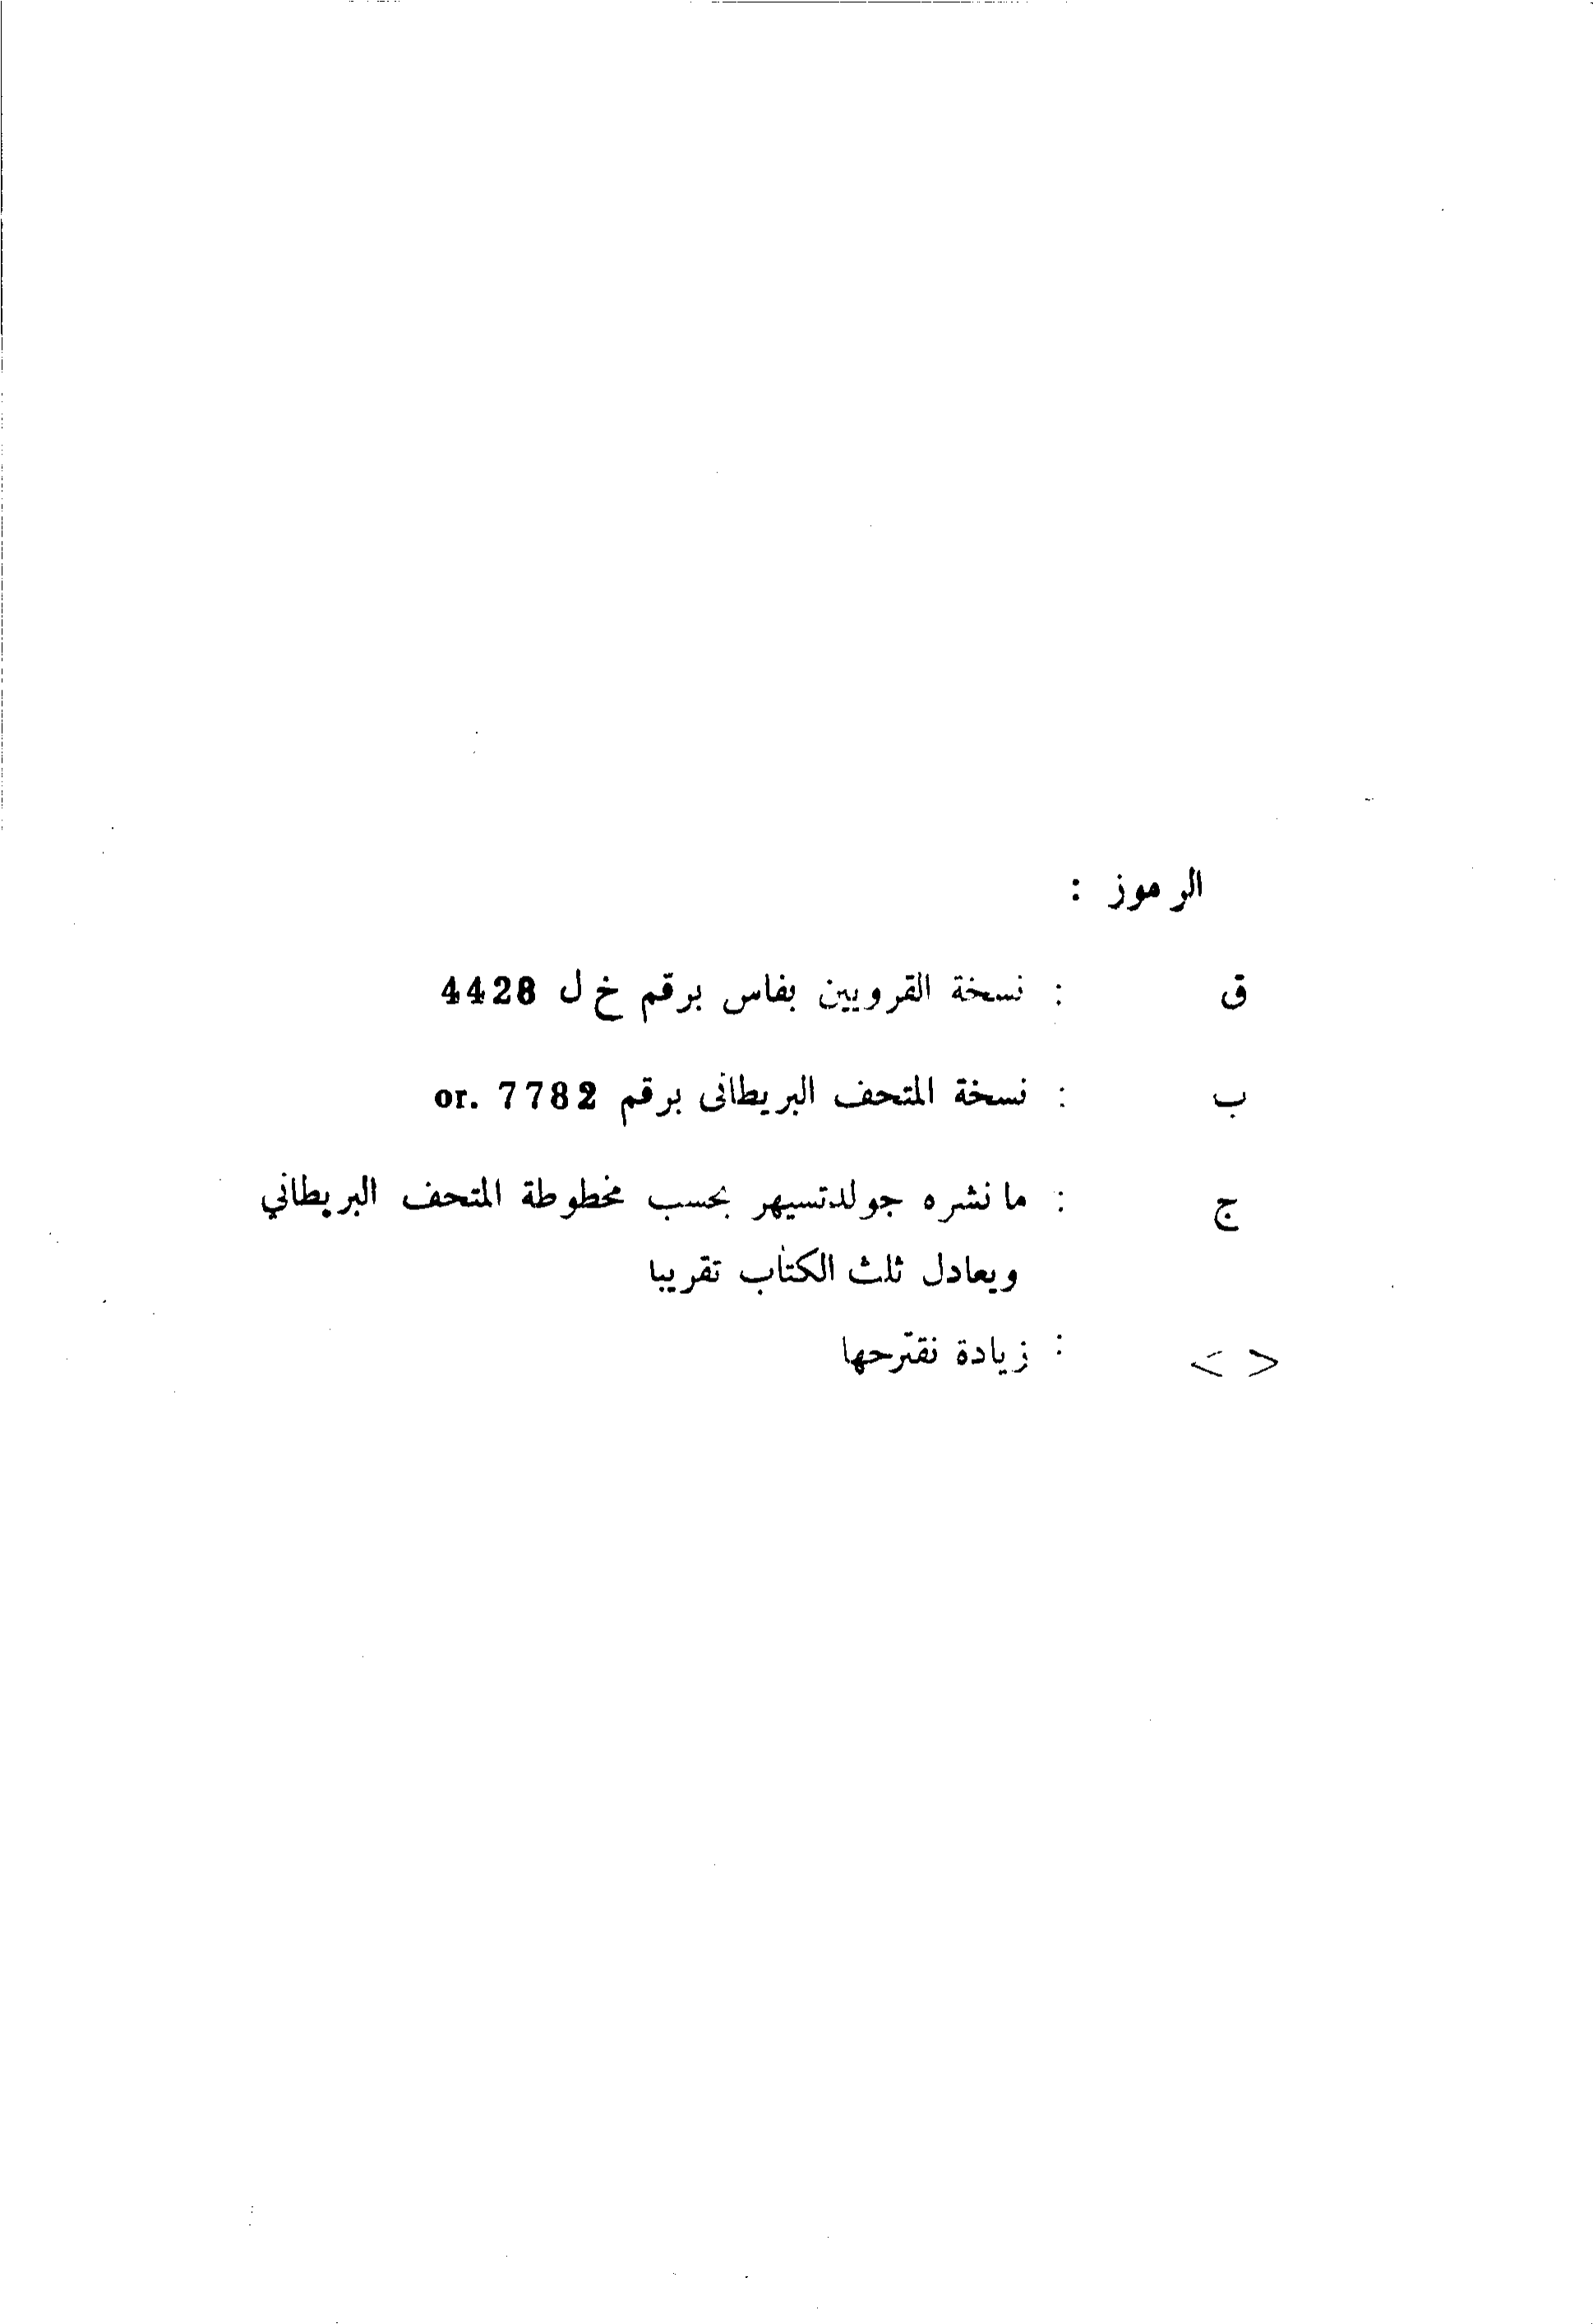 الرموز :
ق : نسخة القرويين بفاس برقم خ ل 4428
ب : نسخة المتحف البريطانى برقم or. 7782
ج : ما نشره جولدتسيهر بحسب مخطوطة المتحف البريطاني
ويعادل ثلث الكتاب تقريبا
< > : زيادة نقترحها